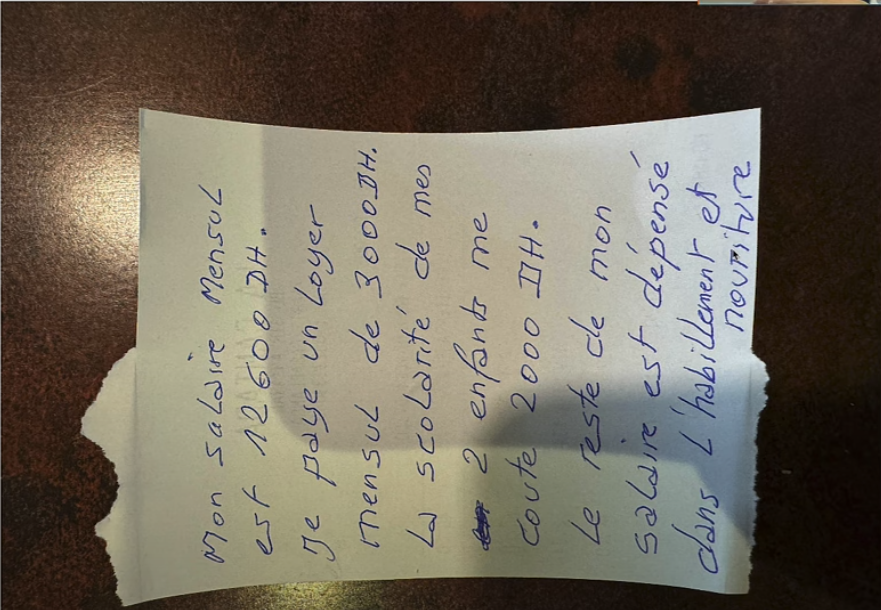 Mon salaire Mensul
est 12600 DH.
Je paye un Loyer
mensul de 3000 DH.
La scolarité de mes
2 enfants me
coute 2000 DH.
Le reste de mon
salaire est dépensé
dans L'habillement et
nourriture